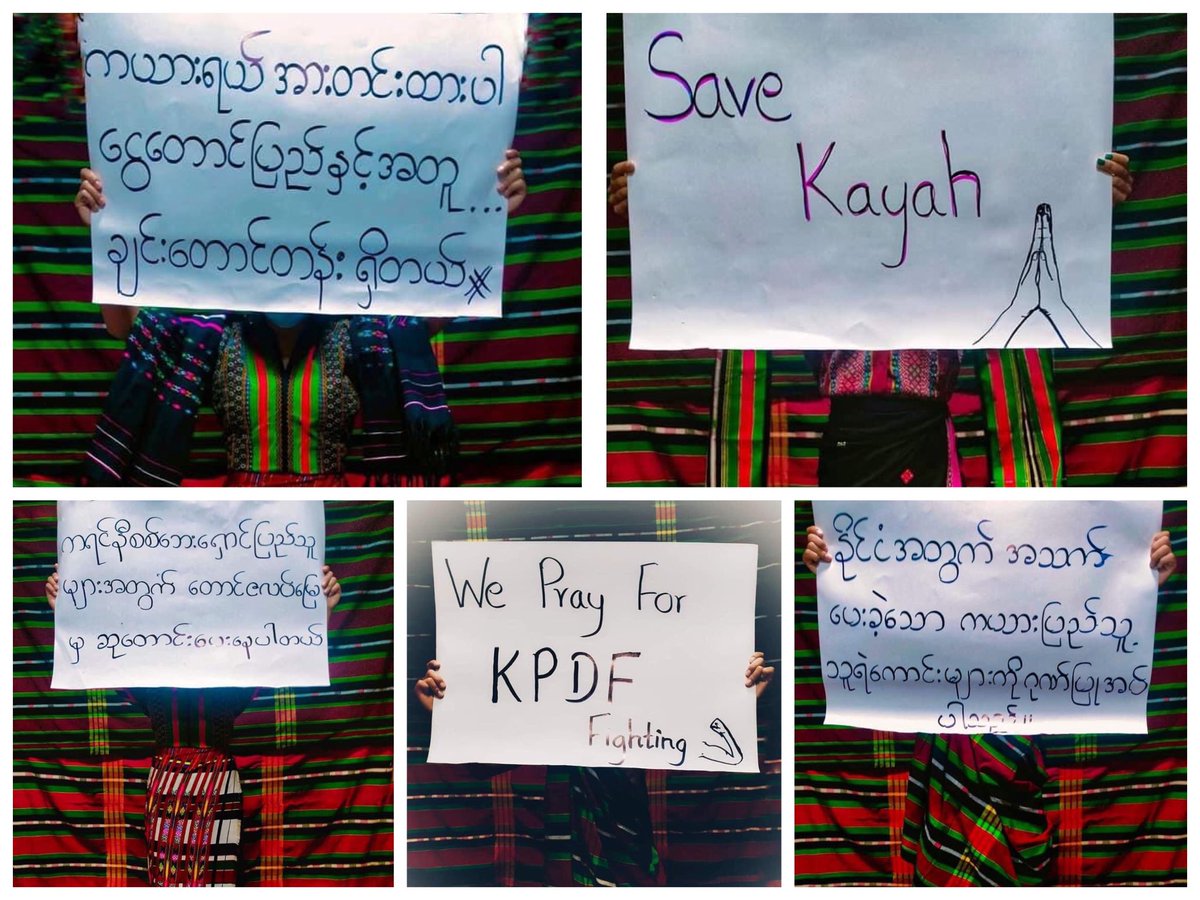 ကယားရယ် အားတင်းထားပါ
ငွေတောင်ပြည်နှင့်အတူ...
ချင်းတောင်တန်း ရှိတယ်#
Save
Kayah
ကရင်နီစစ်ဘေးရှောင်ပြည်သူ
များအတွက် တောင်ဇလပ်မြေ
မှ ဆုတောင်းပေးနေပါတယ်
We Pray For
KPDF
Fighting
နိုင်ငံအတွက် အသက်
ပေးခဲ့သော ကယားပြည်သူ့
သူရဲကောင်းများကိုဂုဏ်ပြုအပ်
ပါသည်။